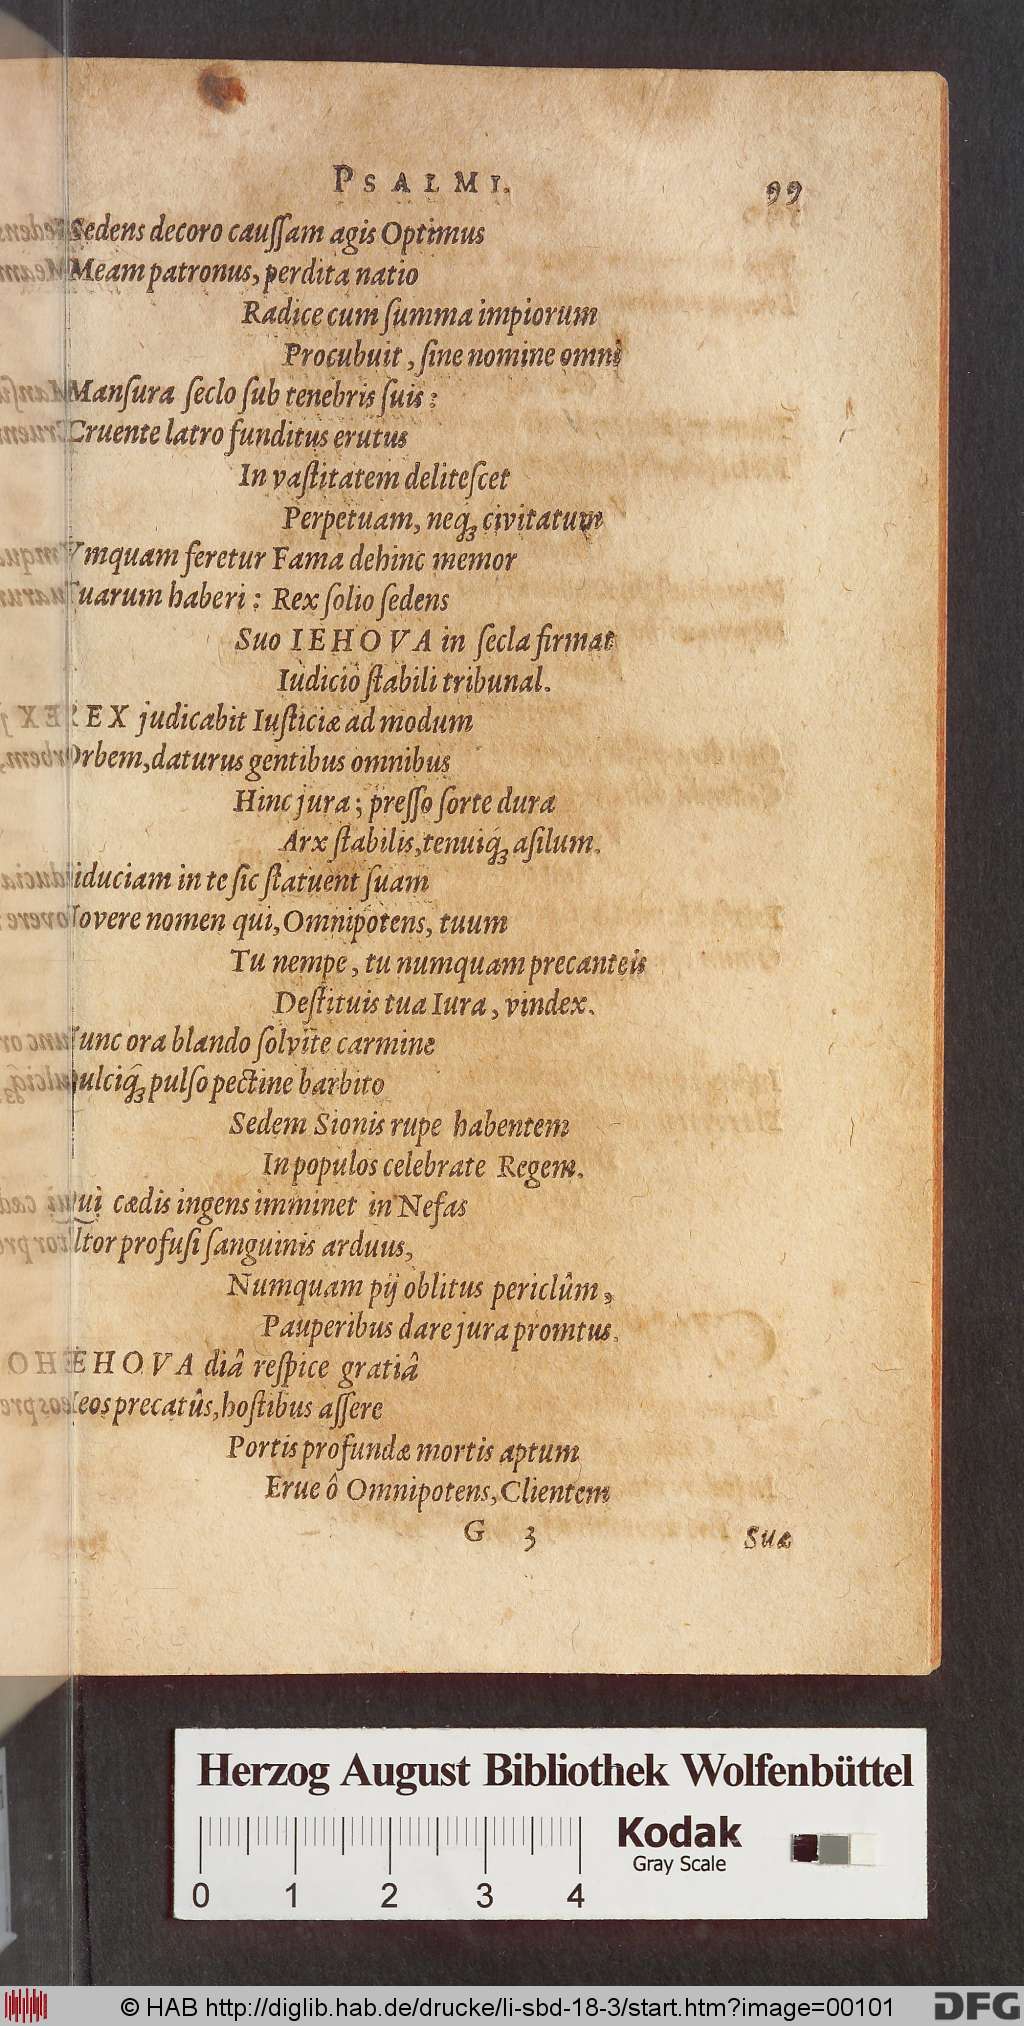 PSALMI. 99
Sedens decoro caussam agis Optimus
Meam patronus, perdita natio
Radice cum summa impiorum
Procubuit, sine nomine omni
Mansura seclo sub tenebris suis:
Cruente latro funditus erutus
In vastitatem delitescet
Perpetuam, neq́ꝫ civitatum
Vmquam feretur Fama dehinc memor
Tuarum haberi: Rex solio sedens
Suo IEHOVA in secla firmat
Iudicio stabili tribunal.
REX judicabit Iusticiæ ad modum
Orbem, daturus gentibus omnibus
Hinc jura; presso sorte dura
Arx stabilis, tenuiq́ꝫ asilum.
iduciam in te sic statuent suam
Novere nomen qui, Omnipotens, tuum
Tu nempe, tu numquam precanteis
Destituis tua Iura, vindex.
Nunc ora blando solvite carmine
ulciq́ꝫ pulso pectine barbito
Sedem Sionis rupe habentem
In populos celebrate Regem.
ui cædis ingens imminet in Nefas
ltor profusi sanguinis arduus,
Numquam pij oblitus periclûm,
Pauperibus dare jura promtus.
EHOVA diâ respice gratiâ
leos precatûs, hostibus assere
Portis profundæ mortis aptum
Erue ô Omnipotens, Clientem
G 3 Suæ
Herzog August Bibliothek Wolfenbüttel
Kodak
Gray Scale
0 1 2 3 4
© HAB http://diglib.hab.de/drucke/li-sbd-18-3/start.htm?image=00101
DFG